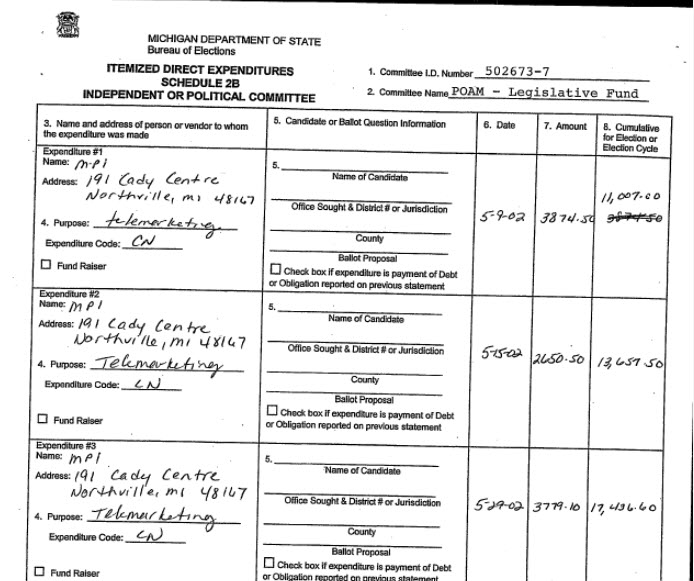 MICHIGAN DEPARTMENT OF STATE
Bureau of Elections
ITEMIZED DIRECT EXPENDITURES
SCHEDULE 2B
INDEPENDENT OR POLITICAL COMMITTEE
1. Committee I.D. Number 502673-7
2. Committee Name POAM - Legislative Fund
3. Name and address of person or vendor to whom the expenditure was made
5. Candidate or Ballot Question Information
6. Date
7. Amount
8. Cumulative for Election or Election Cycle
Expenditure #1
Name: MPI
Address: 191 Cady Centre
Northville, MI 48167
4. Purpose: telemarketing
Expenditure Code: CN
Fund Raiser
5.
Name of Candidate
Office Sought & District # or Jurisdiction
County
Ballot Proposal
Check box if expenditure is payment of Debt
or Obligation reported on previous statement
5-9-02
3874.50
11,007.00
3874.50
Expenditure #2
Name: MPI
Address: 191 Cady Centre
Northville, MI 48167
4. Purpose: Telemarketing
Expenditure Code: CN
Fund Raiser
5.
Name of Candidate
Office Sought & District # or Jurisdiction
County
Ballot Proposal
Check box if expenditure is payment of Debt
or Obligation reported on previous statement
5-15-02
2650.50
13,657.50
Expenditure #3
Name: MPI
Address: 191 Cady Centre
Northville, MI 48167
4. Purpose: Telemarketing
Expenditure Code: CN
Fund Raiser
5.
Name of Candidate
Office Sought & District # or Jurisdiction
County
Ballot Proposal
Check box if expenditure is payment of Debt
or Obligation reported on previous statement
5-29-02
3779.10
17,436.60